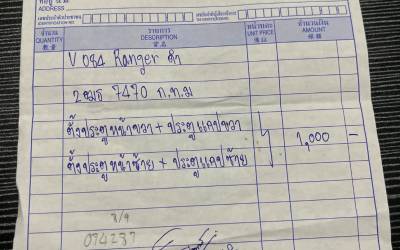 ที่อยู่
ADDRESS
เลขประจำตัวประชาชน
จำนวน
QUANTITY
數量
รายการ
DESCRIPTION
貨名
หน่วยละ
UNIT PRICE
單價
จำนวนเงิน
AMOUNT
銀額
V 084 Ranger ดำ
2ฒธ 7470 ก.ท.ม
ตั้งประตูหน้าขวา + ประตูแคปขวา
ตั้งประตูหน้าซ้าย + ประตูแคปซ้าย
1,000 -
8/9
074287